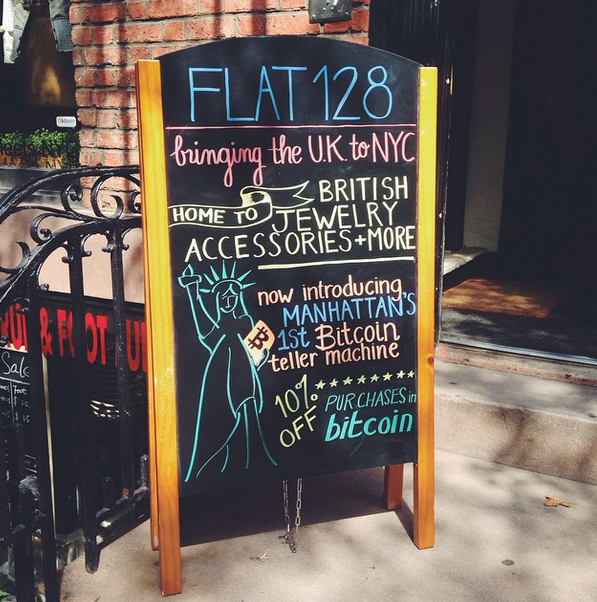 FLAT 128
bringing the U.K. to NYC
HOME TO BRITISH
JEWELRY
ACCESSORIES + MORE
now introducing
MANHATTAN'S
1st Bitcoin
teller machine
10% OFF
PURCHASES in
bitcoin
& FOOT